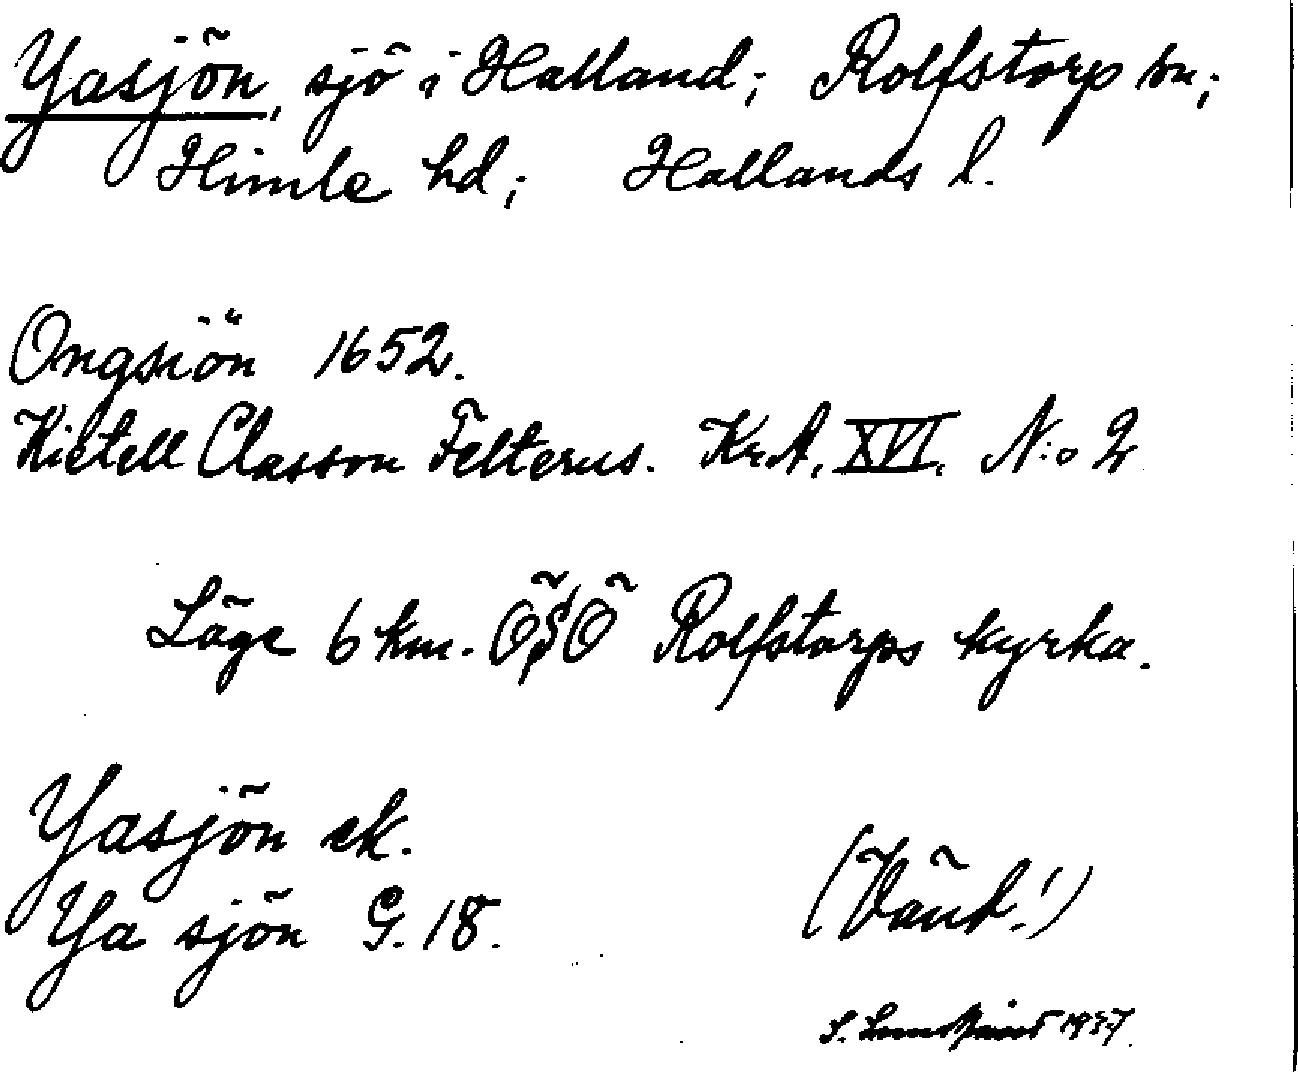 Yasjön, sjö i Halland; Rolfstorp sn;
Himle hd; Hallands l.
Ongsiön 1652.
Kietell Classon Felterus. Kr.A. XVI. N:o 2
Läge 6 km. ÖSÖ Rolfstorps kyrka.
Yasjön ek.
Ya sjön G. 18.
(Vänd!)
S. 1937.